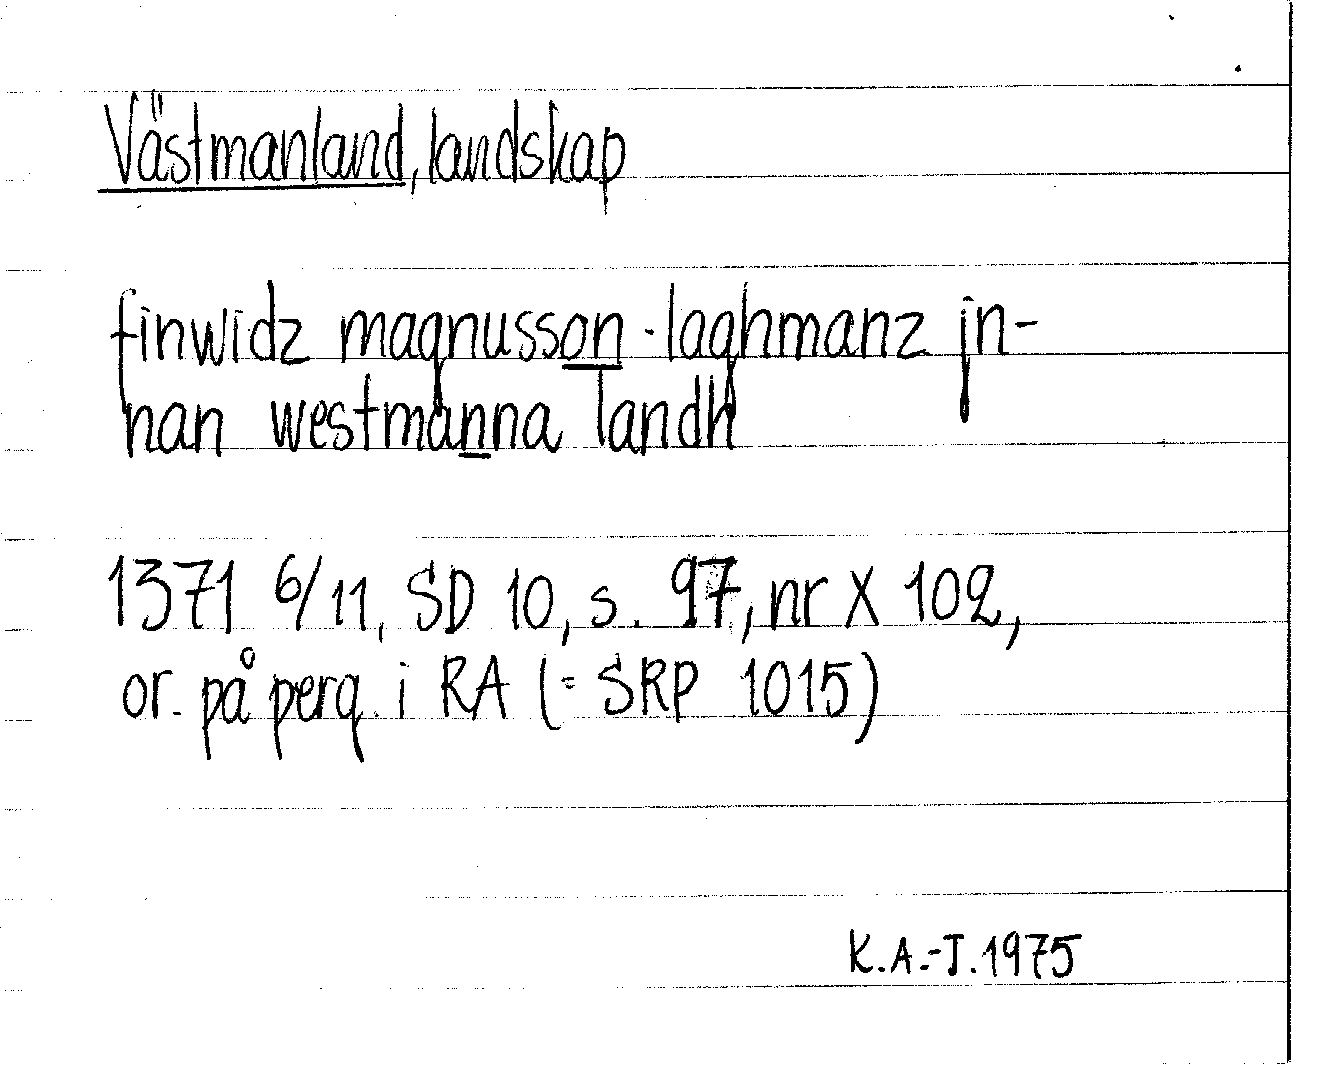 Västmanland, landskap
finwidz magnusson · laghmanz jn-
nan westmanna landh
1371 6/11, SD 10, s. 97, nr X 102,
or. på perg. i RA (= SRP 1015)
K.A.-J. 1975